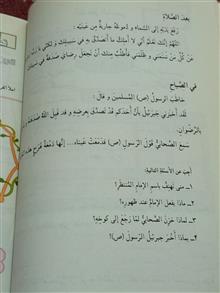 بعدَ الصَّلاةِ
رَفَعَ يَدَيهِ إلى السَّماءِ وَ دُموعُهُ جاريةٌ مِن عَينَيهِ :
اللّهُمَّ إنَّكَ تَعْلَمُ أنّي لا أملِكُ ما أتَصَدَّقُ بِهِ في سَبيلِكَ وَ لكنّي
عَنْ كُلِّ مَنْ شَتَمَني وَ ظَلَمَني فأطْلُبُ مِنكَ أنْ تَجْعَلَ رِضايَ صَدَقةً في
في الصَّباحِ
خاطَبَ الرَّسولُ (ص) المُسلمينَ وَ قالَ :
لَقَد أخبَرَني جِبرَئيلُ بِأنَّ أحَدَكُم قَد تَصَدَّقَ بِعِرضِهِ وَ قَد قَبِلَ اللّهُ صَدَقَتَهُ
بِالرِّضْوانِ.
سَمِعَ الصَّحابيُّ قَولَ الرَّسولِ (ص) فَدَمَعَتْ عَيناهُ... إنَّها دَمْعَةُ فَرَحٍ هذِهِ
أجِبْ عن الأسئلةِ التاليةِ:
١ـ مَتى نَهتِفُ باسمِ الإمامِ المُنتَظَرِ؟
٢ـ ماذا يَفعلُ الإمامُ عندَ ظهورِهِ؟
٣ـ لماذا حَزِنَ الصَّحابيُّ لمّا رَجَعَ إلى كوخِهِ؟
٤ـ بماذا أخْبَرَ جِبرَئيلُ الرَّسولَ (ص)؟